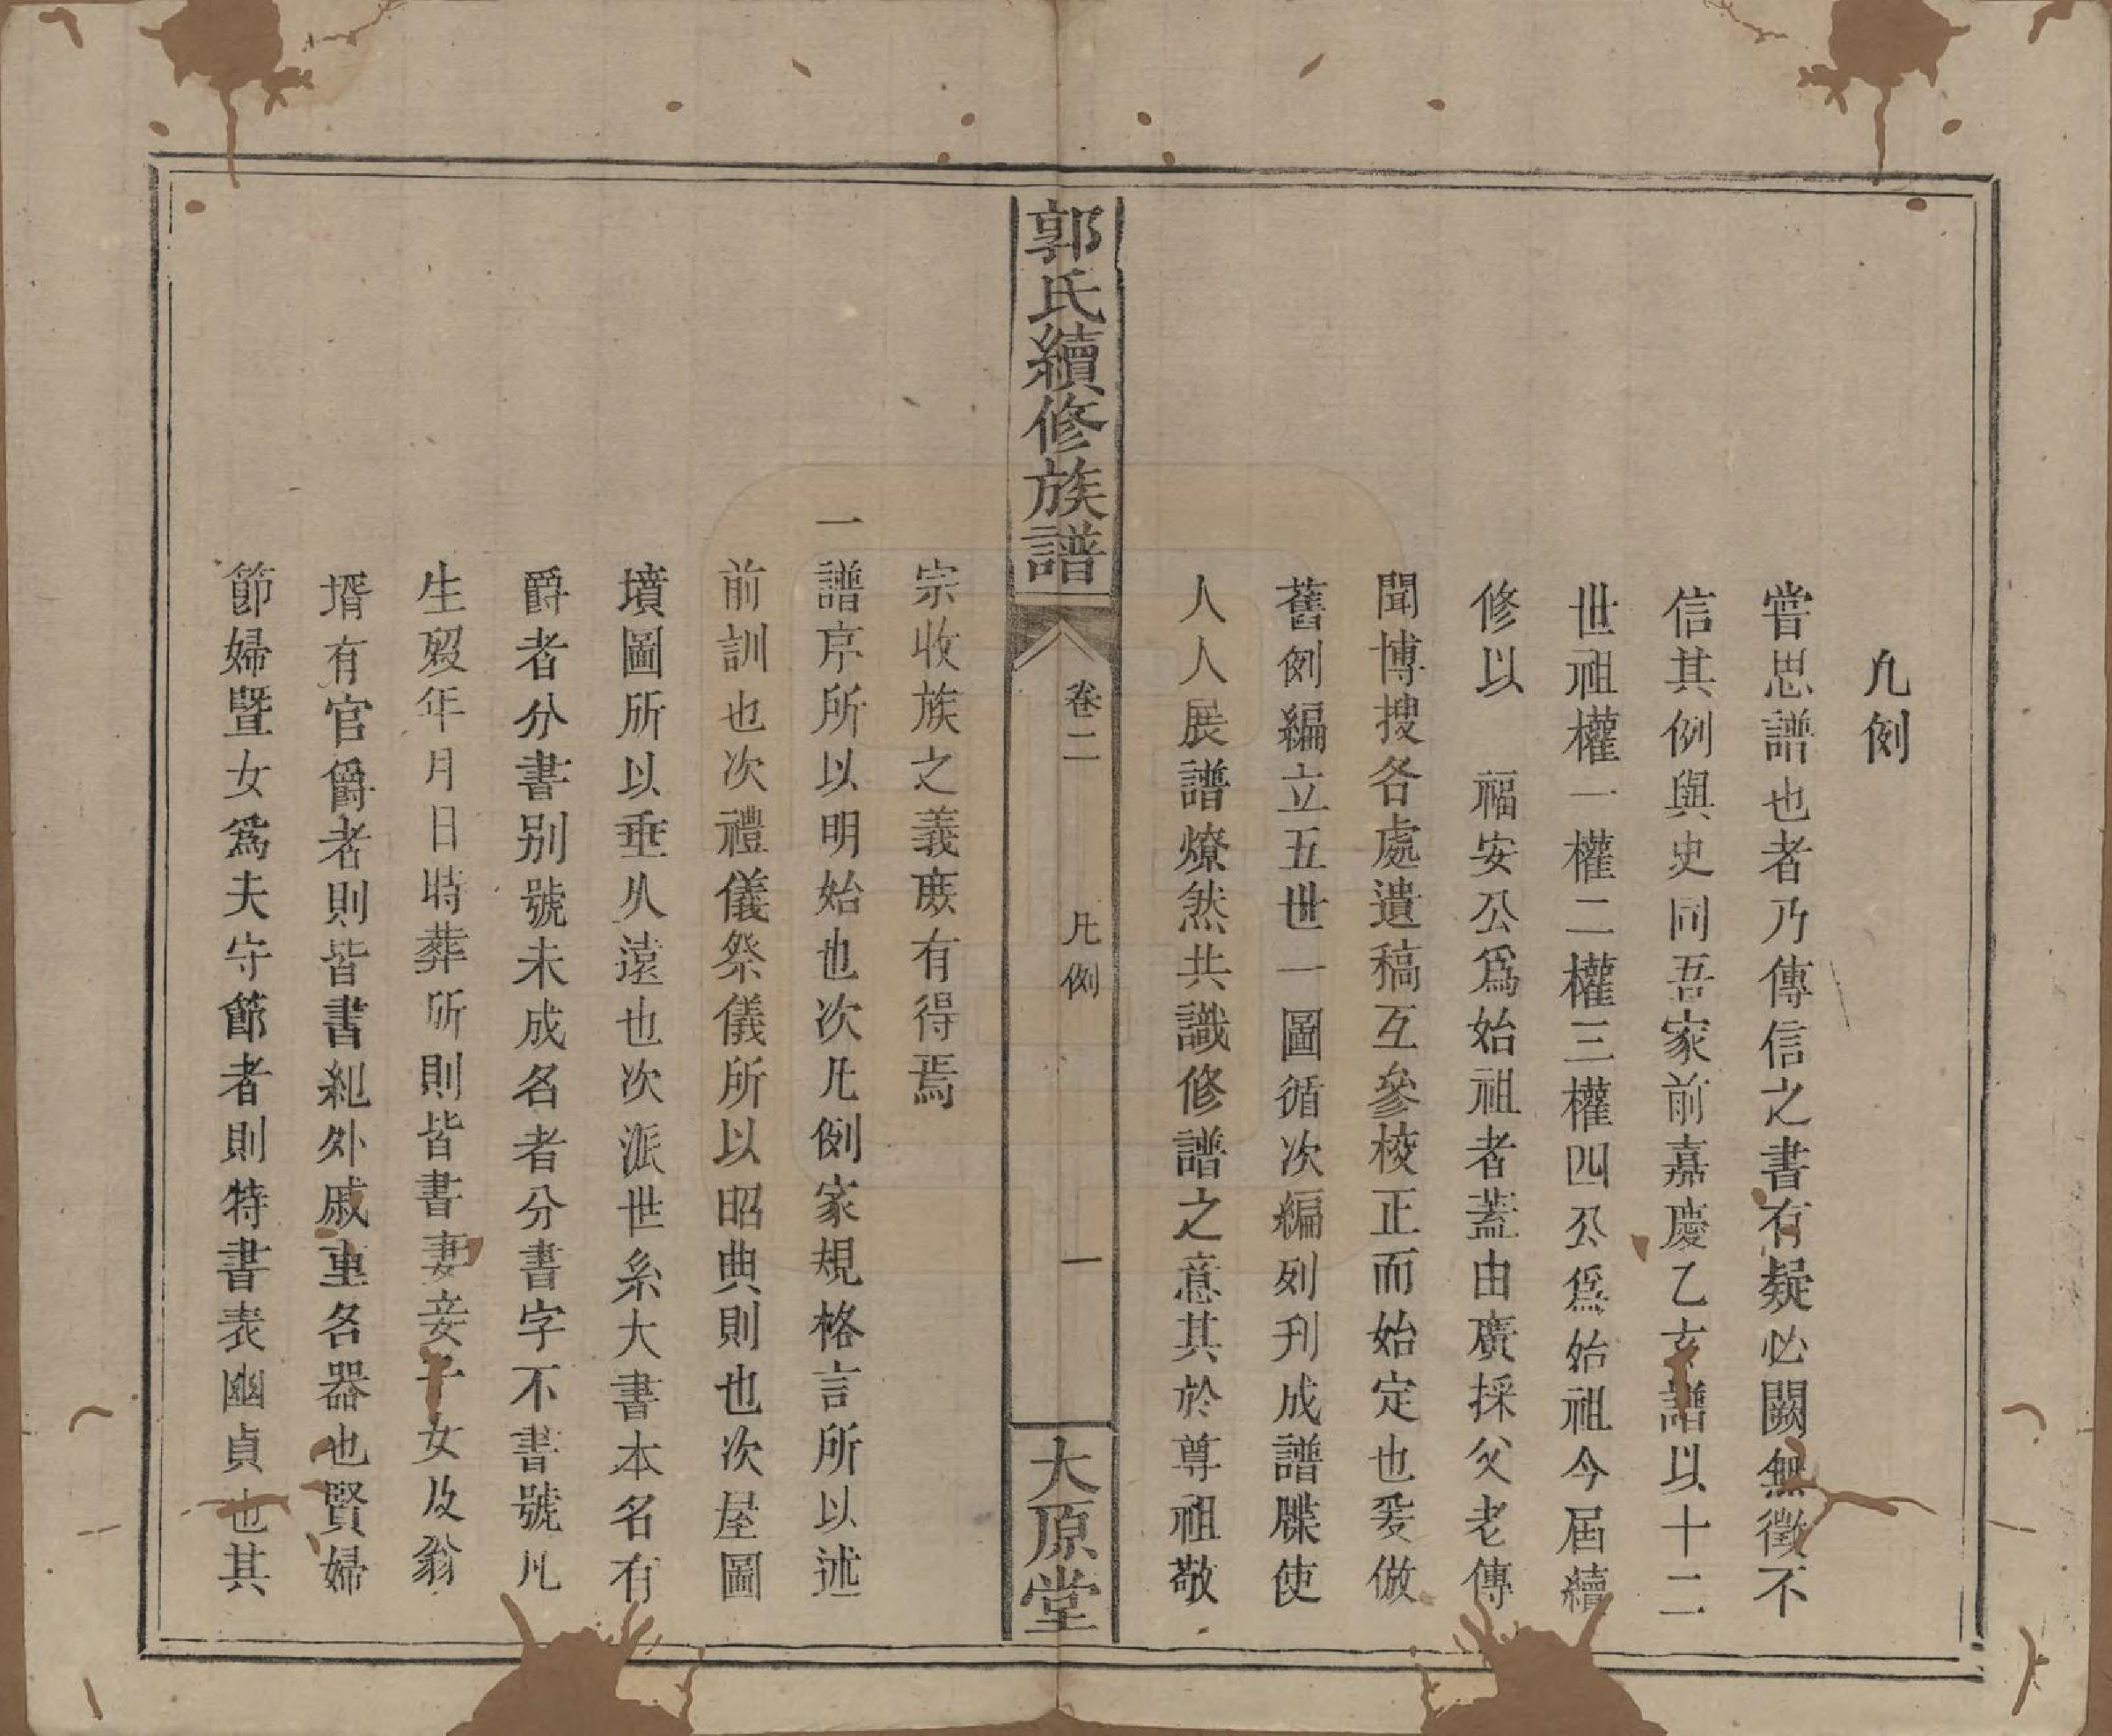 凢例
嘗思譜也者乃傳信之書有疑必闕無徵不
信其例與史同吾家前嘉慶乙亥譜以十二
世祖權一權二權三權四公爲始祖今屆續
修以　福安公爲始祖者蓋由廣採父老傳
聞博搜各處遺稿互參校正而始定也爰倣
舊例編立五世一圖循次編列刋成譜牒使
人人展譜燎然共識修譜之意其於尊祖敬
郭氏續修族譜
卷二
凢例
一
大原堂
宗收族之義庻有得焉
一譜序所以明始也次凡例家規格言所以述
前訓也次禮儀祭儀所以昭典則也次屋圖
墳圖所以垂久遠也次派世系大書本名有
爵者分書别號未成名者分書字不書號凡
生歿年月日時葬所則皆書妻妾子女及翁
壻有官爵者則皆書紀外戚重名器也賢婦
節婦暨女爲夫守節者則特書表幽貞也其